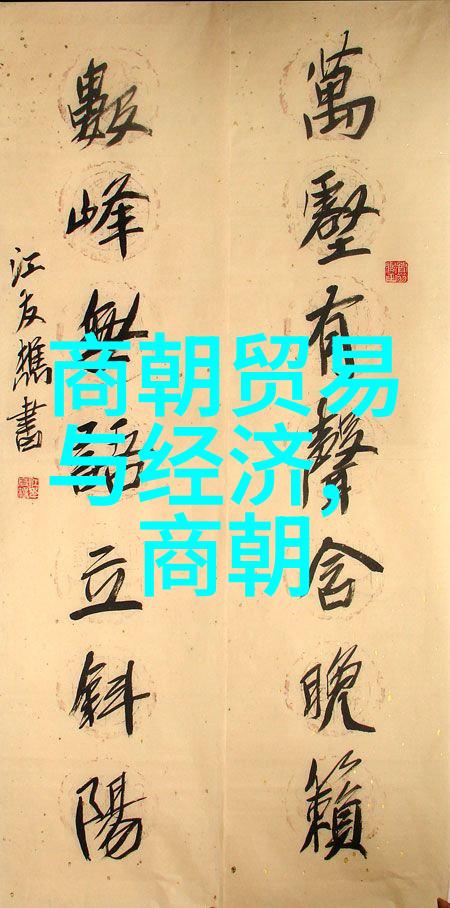 萬壑有聲含晚籟
數峰無語立斜陽
江友樵書
商朝贸易
与经济,
商朝